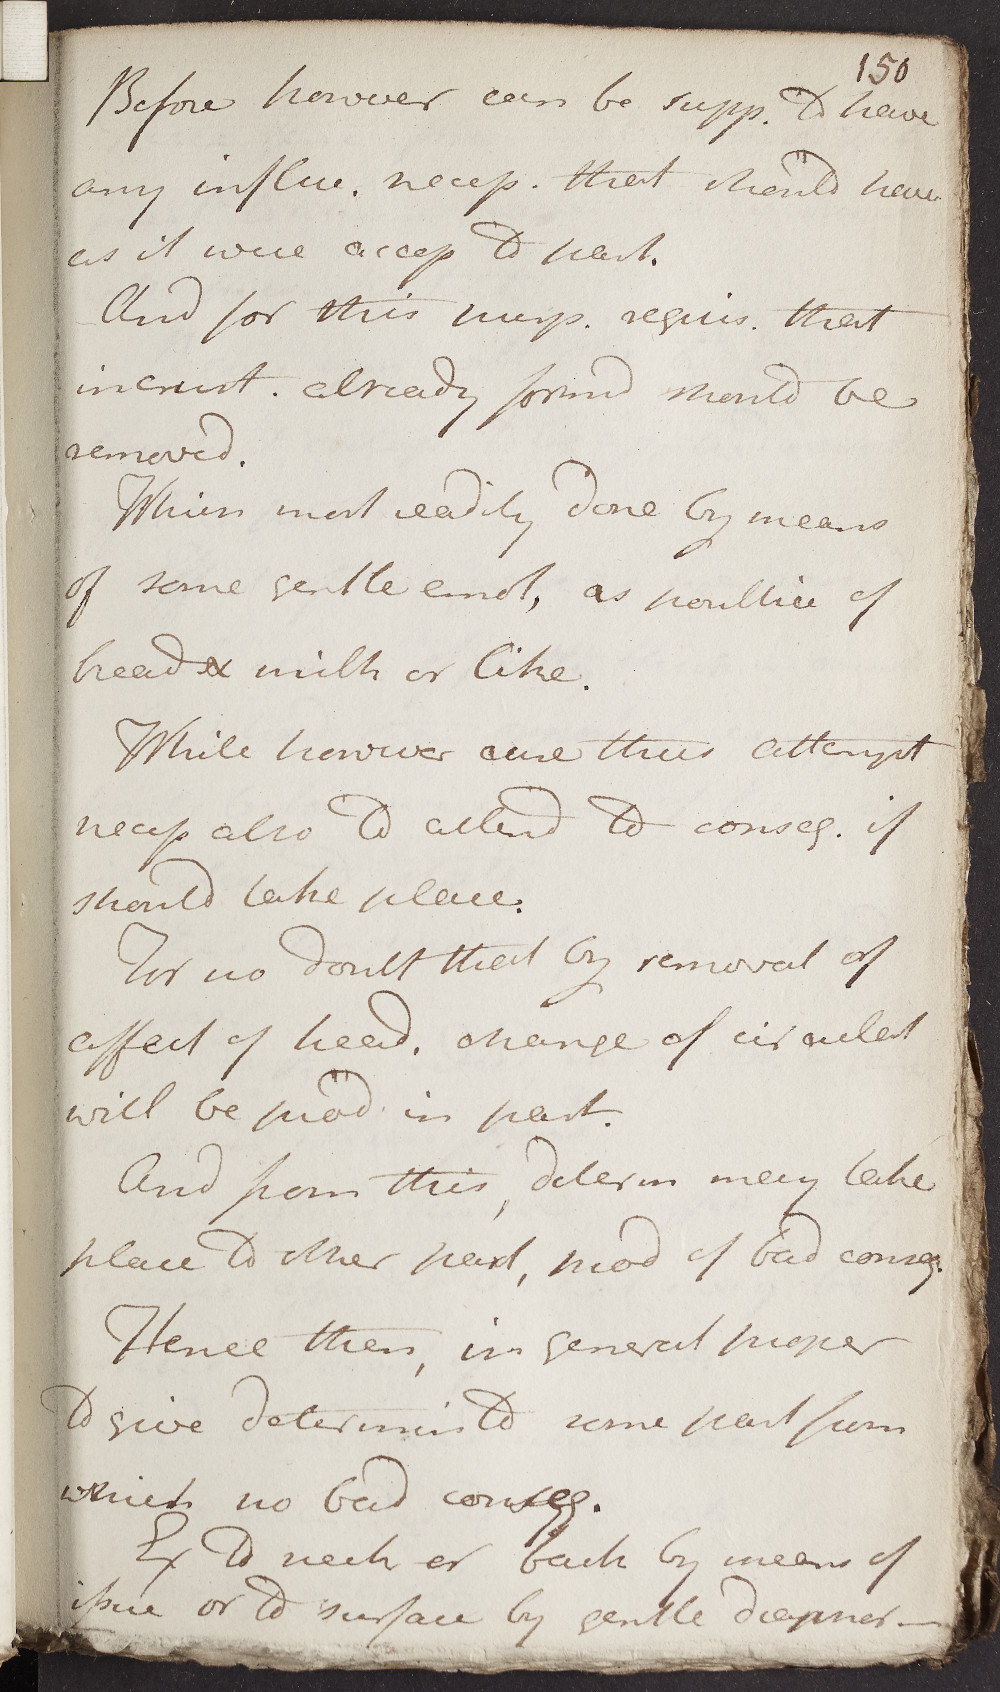 150
Before however can be supp. to have
any influe. necess. that should have
as it were access to part.
And for this purp. requis. that
incrust. already form'd should be
removed.
Which most readily done by means
of some gentle emol, as poultice of
bread & milk or like.
While however cure thus attempt
necess also to attend to conseq. if
should take place.
For no doubt that by removal of
affect of head. change of circulat
will be prod in part.
And from this, determ may take
place to other part, prod of bad conseq.
Hence then, in general proper
to give determin to some part from
which no bad conseq.
Ex to neck or back by means of
issue or to surface by gentle diapner—